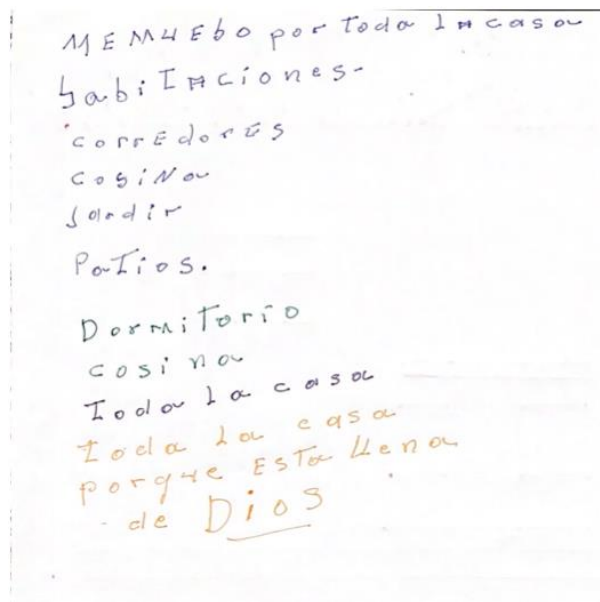 MEMUEbo por Toda la casa
habiTaciones-
corrEdorES
cosiNa
Jardir
PaTios.
DormiTorio
cosina
Toda la casa
Toda la casa
porque ESTa llena
de Dios